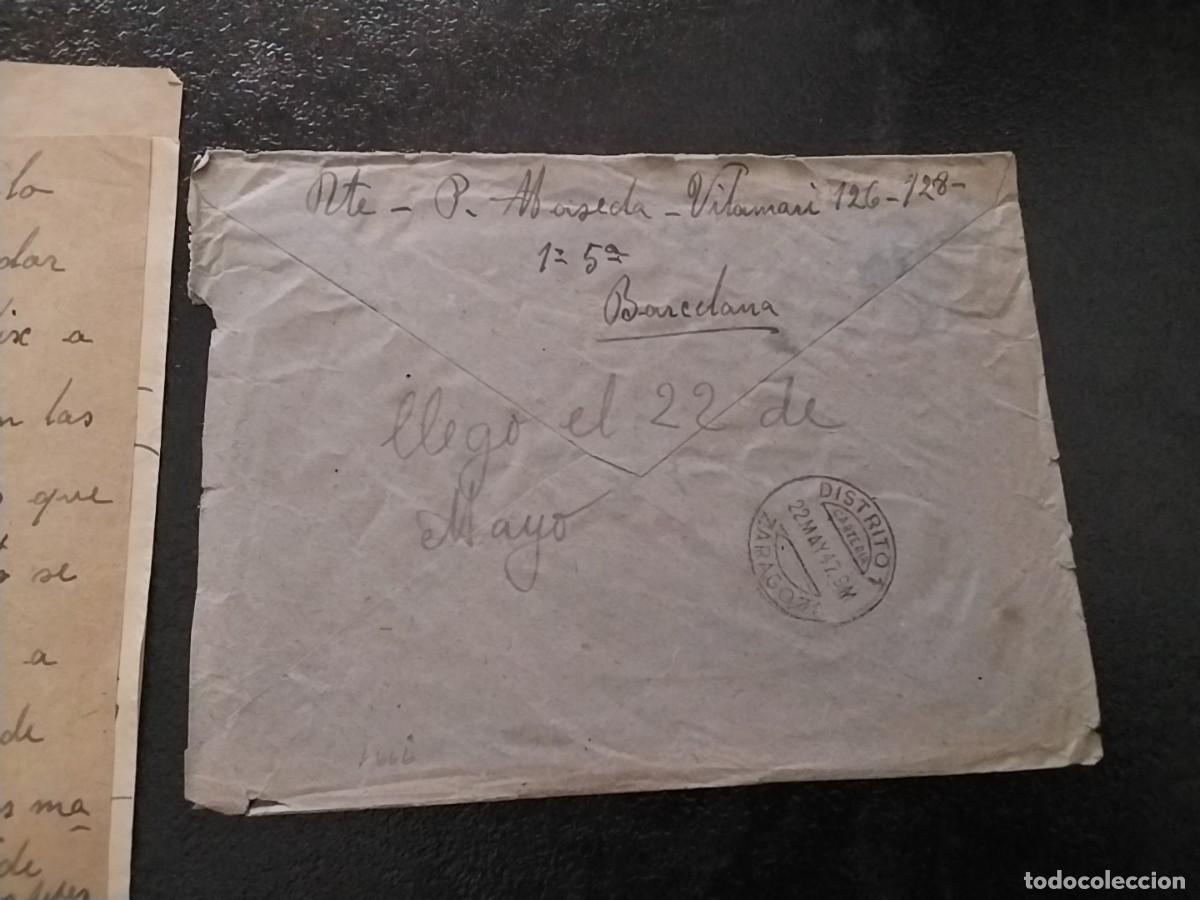 lo
dar
a
las
que
se
a
de
ma
de
Rte - P. Moiseda - Vilamari 126-128-
1ª 5ª
Barcelona
llego el 22 de
Mayo
DISTRITO
CARTERIA
22 MAY 47. 9M
ZARAGOZA
todocoleccion